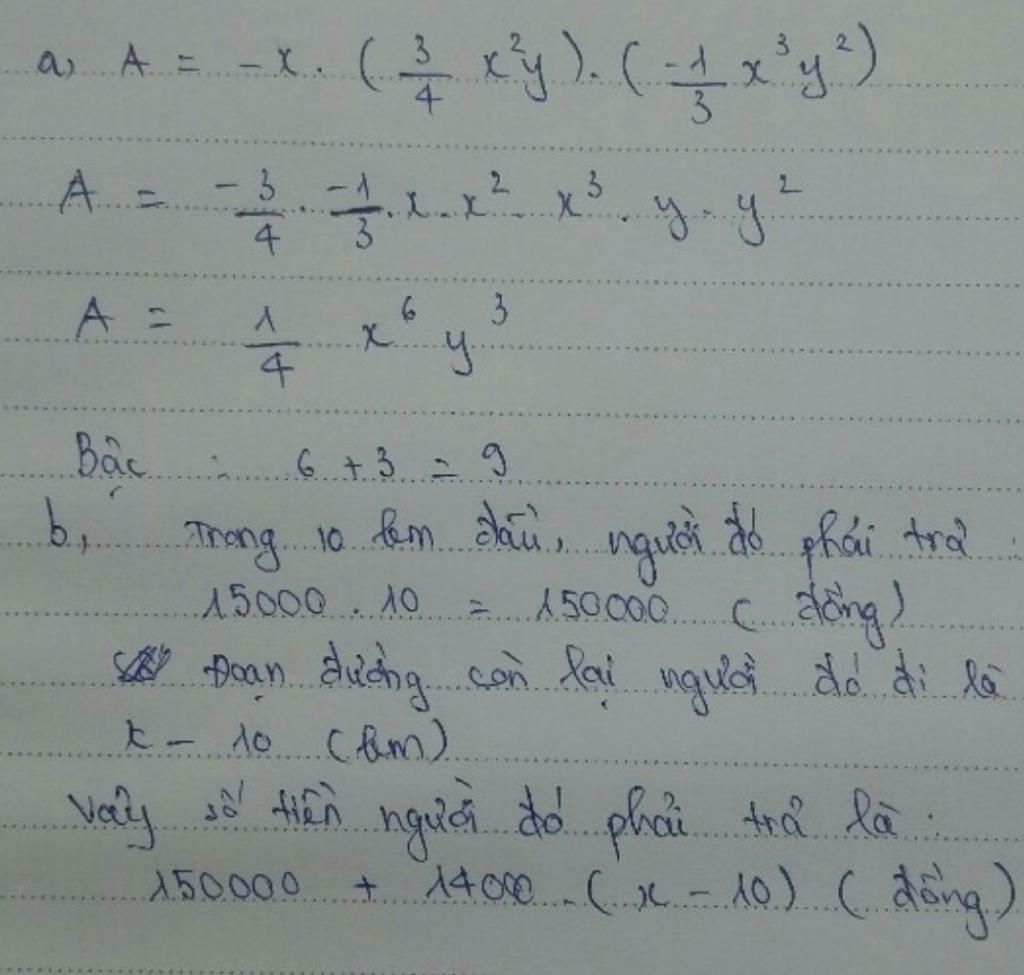 a, A = -x . (3/4 x²y) . (-1/3 x³y²)
A = -3/4 . -1/3 . x . x² . x³ . y . y²
A = 1/4 x⁶ y³
Bậc : 6 + 3 = 9
b, Trong 10 km đầu, người đó phải trả :
15000 . 10 = 150000 ( đồng)
Đoạn đường còn lại người đó đi là
x - 10 (km)
Vậy số tiền người đó phải trả là :
150000 + 14000 . (x - 10) ( đồng)